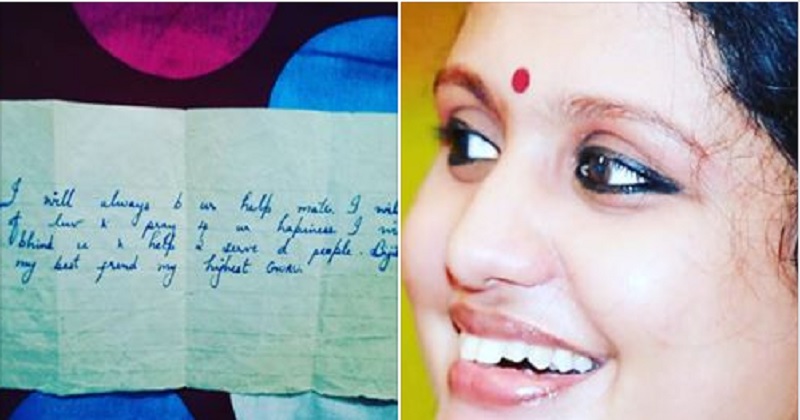 I will always b ur help mate. I
luv & pray 4 ur hapiness I
bhind u & help 2 serve d people.
my best frend my highest Guru.